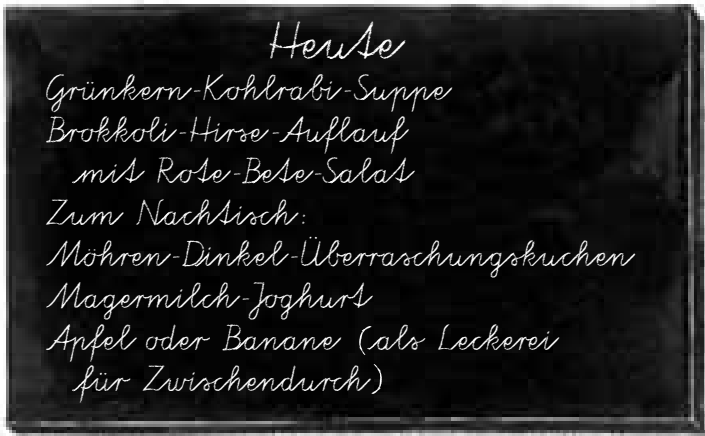 Heute
Grünkern-Kohlrabi-Suppe
Brokkoli-Hirse-Auflauf
mit Rote-Bete-Salat
Zum Nachtisch:
Möhren-Dinkel-Überraschungskuchen
Magermilch-Joghurt
Apfel oder Banane (als Leckerei
für Zwischendurch)